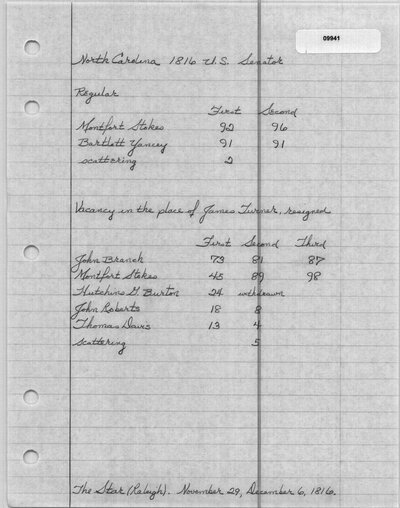 09941
North Carolina 1816 U.S. Senator
Regular
First Second
Montfort Stokes 92 96
Bartlett Yancey 91 91
scattering 2
Vacancy in the place of James Turner, resigned
First Second Third
John Branch 73 81 87
Montfort Stokes 45 89 98
Hutchins G. Burton 24 withdrawn
John Roberts 18 8
Thomas Davis 13 4
scattering 5
The Star (Raleigh). November 29, December 6, 1816.